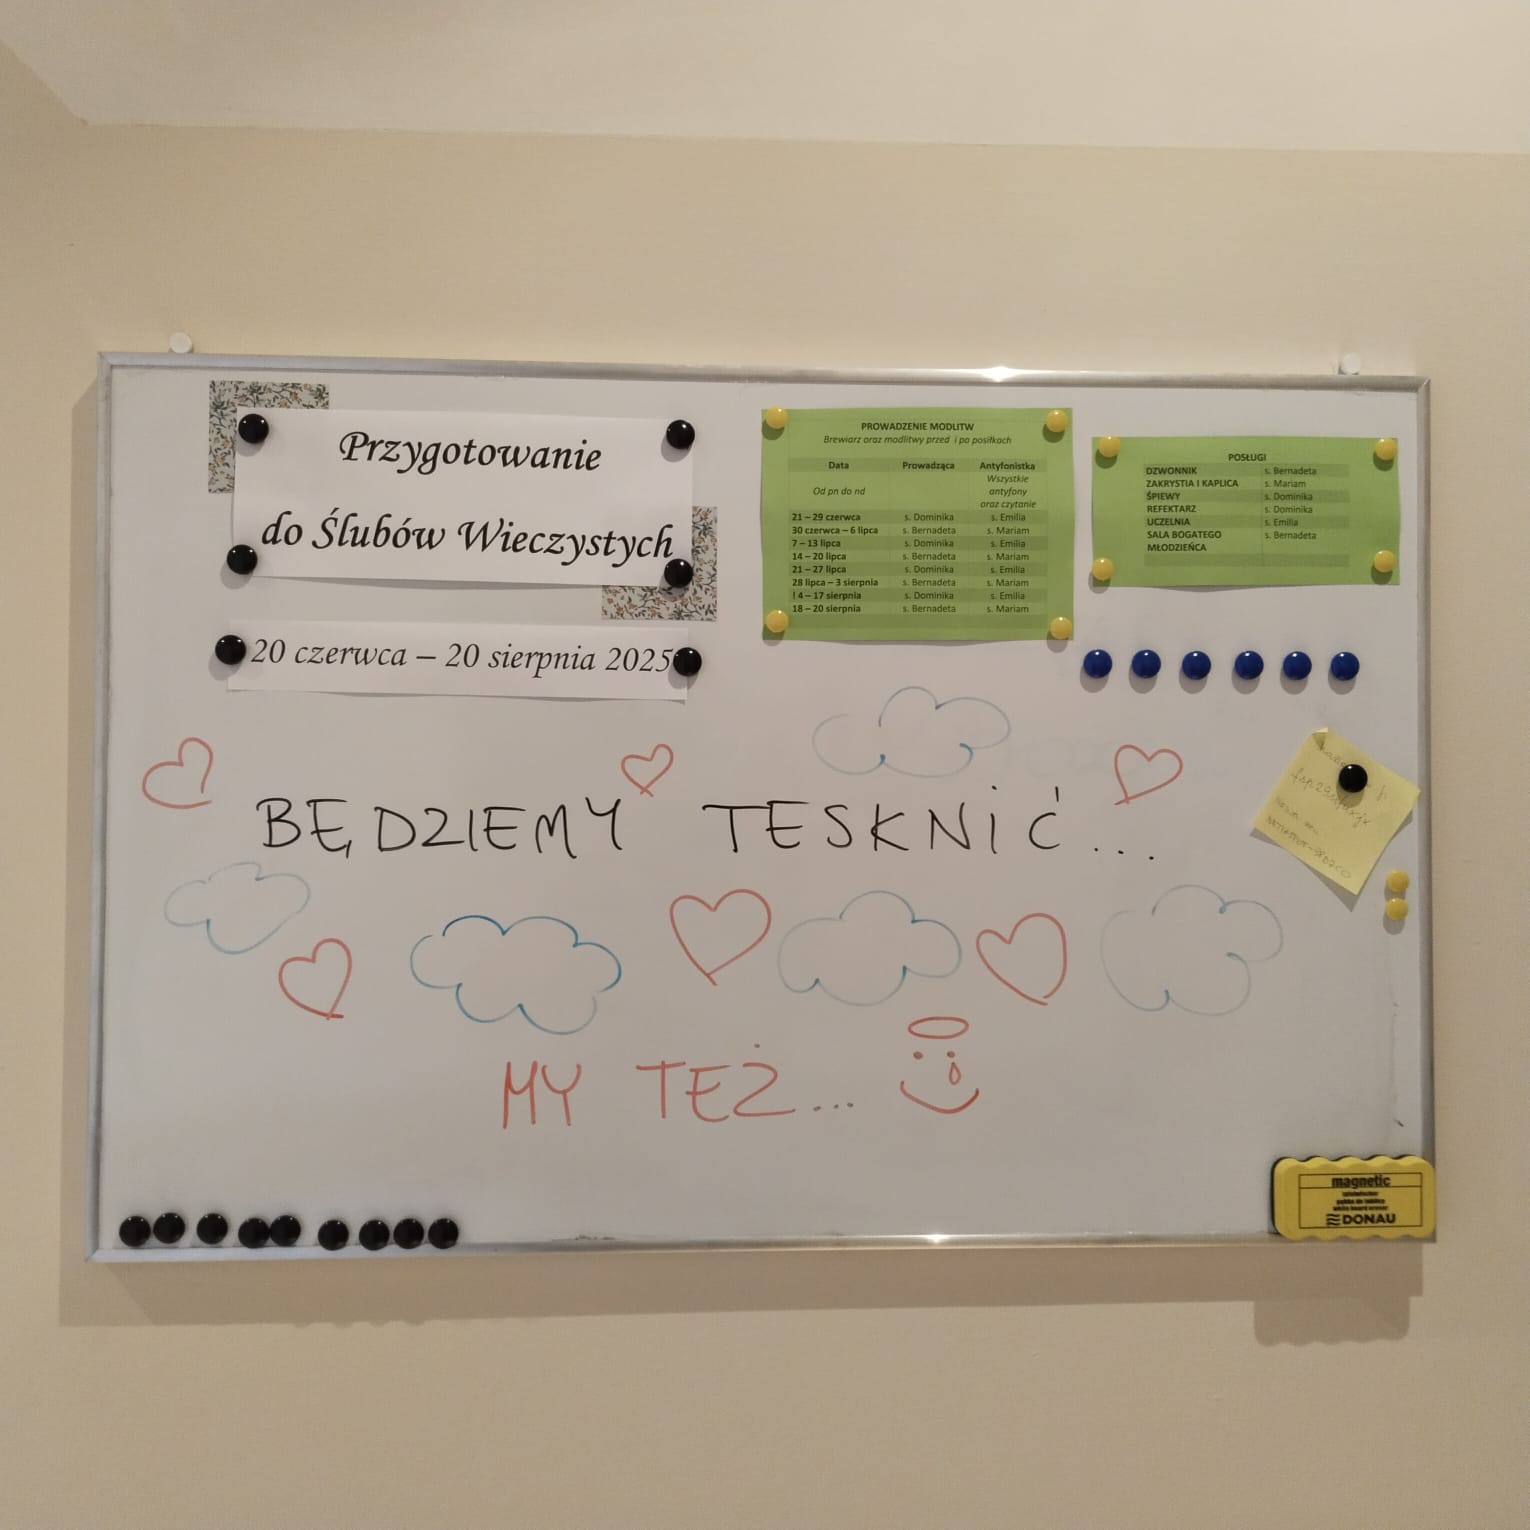 Przygotowanie
do Ślubów Wieczystych
20 czerwca – 20 sierpnia 2025
PROWADZENIE MODLITW
Brewiarz oraz modlitwy przed i po posiłkach
Data Prowadząca Antyfonistka
Od pn do nd Wszystkie
antyfony
oraz czytanie
21 – 29 czerwca s. Dominika s. Emilia
30 czerwca – 6 lipca s. Bernadeta s. Mariam
7 – 13 lipca s. Dominika s. Emilia
14 – 20 lipca s. Bernadeta s. Mariam
21 – 27 lipca s. Dominika s. Emilia
28 lipca – 3 sierpnia s. Bernadeta s. Mariam
! 4 – 17 sierpnia s. Dominika s. Emilia
18 – 20 sierpnia s. Bernadeta s. Mariam
POSŁUGI
DZWONNIK s. Bernadeta
ZAKRYSTIA I KAPLICA s. Mariam
ŚPIEWY s. Dominika
REFEKTARZ s. Dominika
UCZELNIA s. Emilia
SALA BOGATEGO s. Bernadeta
MŁODZIEŃCA
BĘDZIEMY TESKNIĆ...
MY TEŻ...
magnetic
DONAU